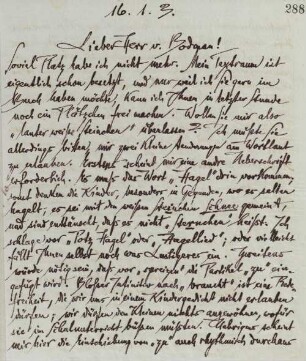 288
16. 1. 3.
Lieber Herr v. Bodman!
Soviel Platz habe ich nicht mehr. Mein Textraum ist
eigentlich schon besetzt, und nur weil ich Sie gern im
Buch haben möchte, kann ich Ihnen in letzter Stunde
noch ein Plätzchen frei machen. Wollen Sie mir also
„lauter weiße Steinchen“ überlassen? Ich müßte Sie
allerdings bitten, mir zwei kleine Änderungen am Wortlaut
zu erlauben. Erstens scheint mir eine andre Ueberschrift
erforderlich. Es muß das Wort „Hagel“ drin vorkommen,
sonst denken die Kinder, besonders in Gegenden, wo es selten
hagelt, es sei mit den weißen Steinchen Schnee gemeint,
und sind enttäuscht, daß es nicht „Sternchen“ heißt. Ich
schlage vor „Hagel“ oder „Hagellied“; oder vielleicht
fällt Ihnen selbst noch was Lustigeres ein. Zweitens
würde nötig sein, daß vor „spreizen“ die Partikel „zu“ ein-
gefügt wird. Bloßer Infinitiv nach „braucht“ ist eine
freiheit, die wir uns in einem Kindergedicht nicht erlauben
dürfen; wir dürfen den Kleinen nichts angewöhnen, wofür
sie im Schulunterricht büßen müssen. Uebrigens scheint
mir hier die Einschiebung von „zu“ auch rhythmisch durchaus